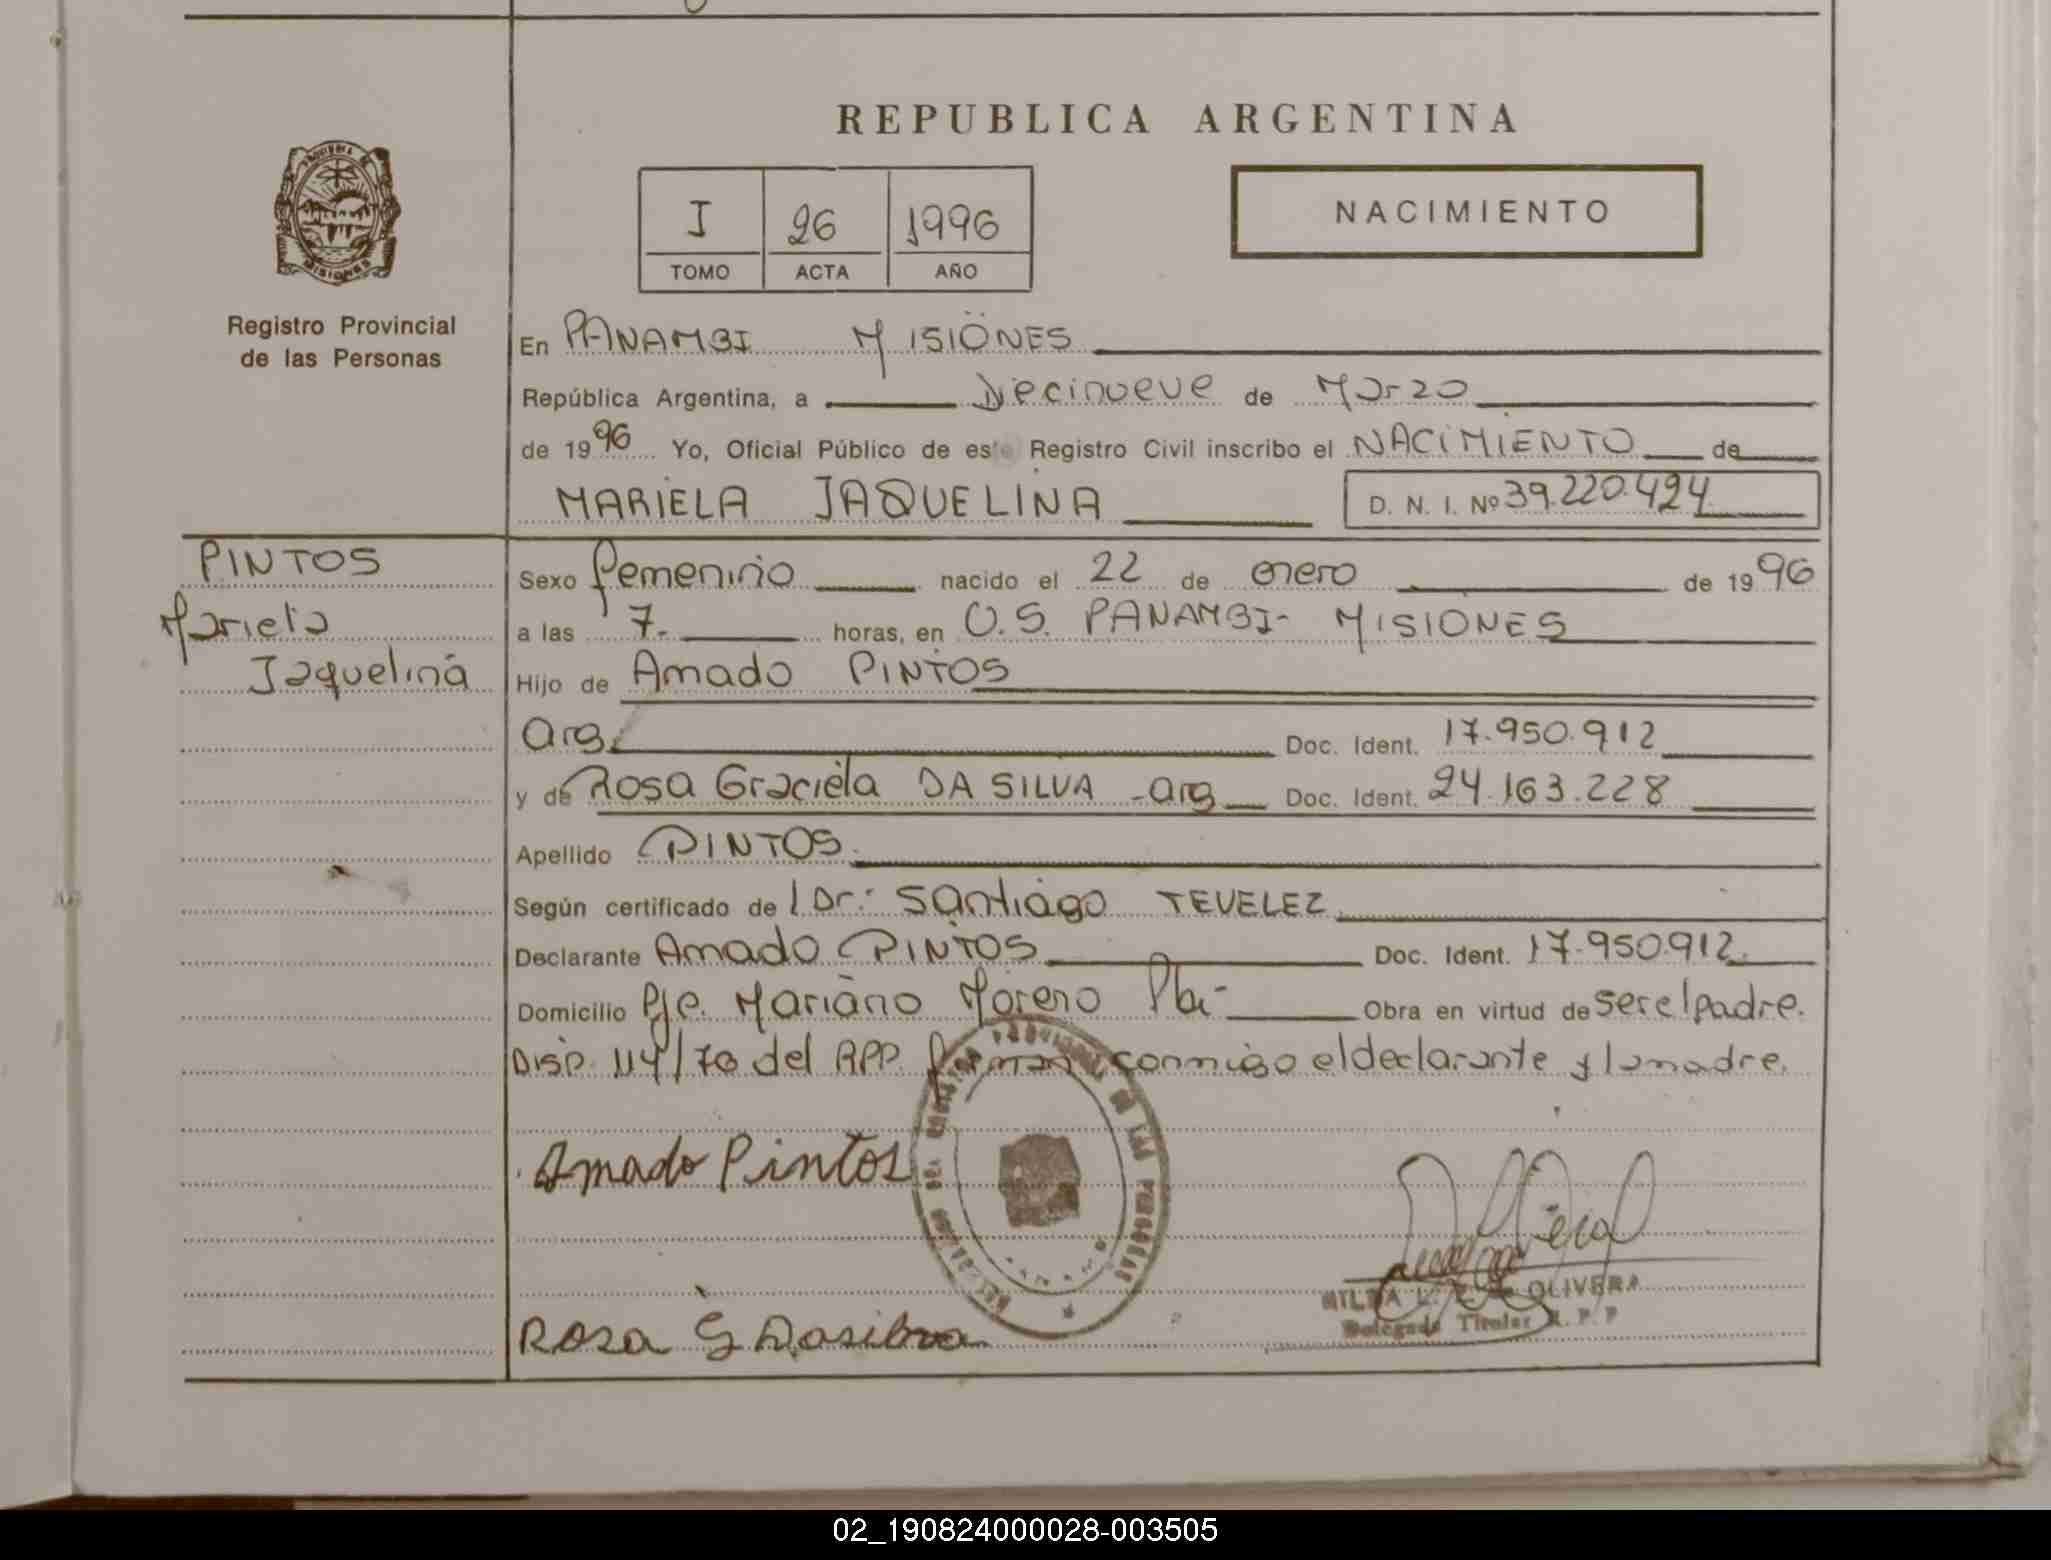 REPUBLICA ARGENTINA
PROVINCIA DE
MISIONES
Registro Provincial
de las Personas
I 26 1996
TOMO ACTA AÑO
NACIMIENTO
En PANAMBI MISIONES
República Argentina, a Diecinueve de Marzo
de 1996 Yo, Oficial Público de este Registro Civil inscribo el NACIMIENTO de
MARIELA JAQUELINA D. N. I. Nº 39.220.424
PINTOS
Mariela
Jaquelina
Sexo femenino nacido el 22 de enero de 1996
a las 7. horas, en U.S. PANAMBI- MISIONES
Hijo de Amado PINTOS
arg. Doc. Ident. 17.950.912
y de Rosa Graciela DA SILVA -arg Doc. Ident. 24.163.228
Apellido PINTOS.
Según certificado de l Dr: Santiago TEVELEZ
Declarante Amado PINTOS Doc. Ident. 17.950.912.
Domicilio Pje. Mariano Moreno Pbi- Obra en virtud de ser el padre.
Disp. 114/70 del RPP. firman conmigo el declarante y la madre.
Amado Pintos
Rosa G Dasilva
OLIVERA
Delegada Titular R. P. P
02_190824000028-003505